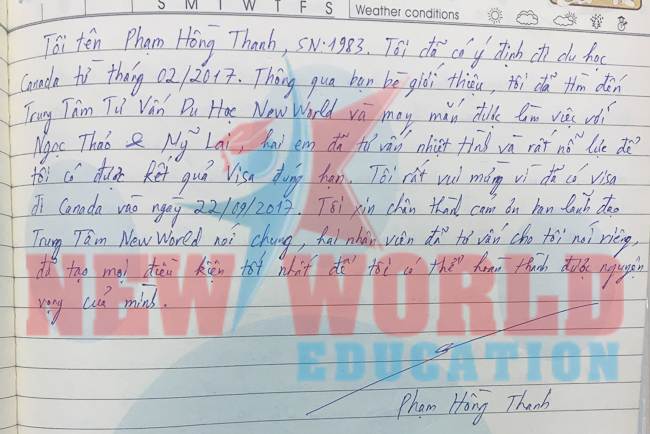 S M T W T F S Weather conditions
Tôi tên Phạm Hồng Thanh, SN: 1983. Tôi đã có ý định đi du học
Canada từ tháng 02/2017. Thông qua bạn bè giới thiệu, tôi đã tìm đến
Trung Tâm Tư Vấn Du Học New World và may mắn được làm việc với
Ngọc Thảo & Mỹ Lai, hai em đã tư vấn nhiệt tình và rất nỗ lực để
tôi có được kết quả Visa đúng hạn. Tôi rất vui mừng vì đã có visa
đi Canada vào ngày 22/09/2017. Tôi xin chân thành cảm ơn ban lãnh đạo
Trung Tâm New World nói chung, hai nhân viên đã tư vấn cho tôi nói riêng,
đã tạo mọi điều kiện tốt nhất để tôi có thể hoàn thành được nguyện
vọng của mình.
NEW WORLD
EDUCATION
Phạm Hồng Thanh